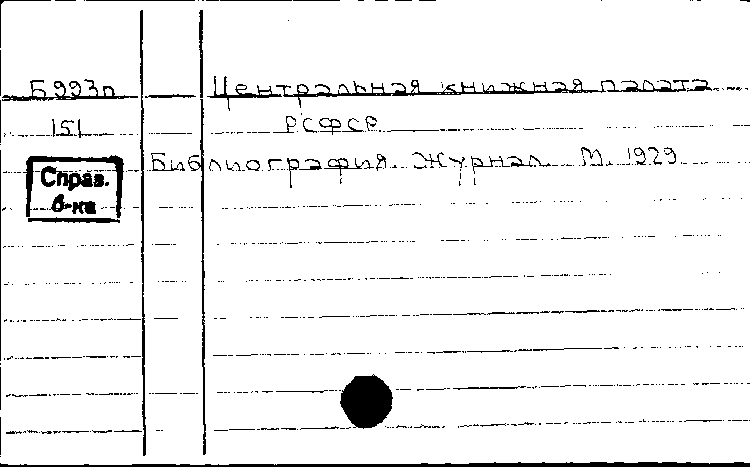 Б993п Центральная книжная палата
151 РСФСР
Библиография. Журнал. М. 1929
Справ.
б-ка